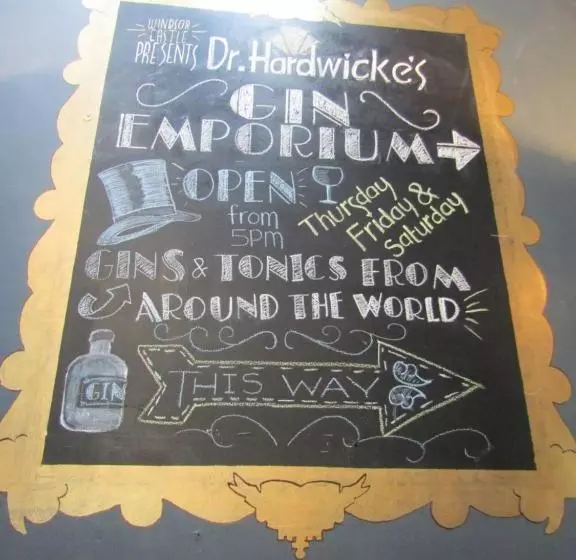 WINDSOR
CASTLE
PRESENTS
Dr. Hardwicke's
GIN
EMPORIUM
OPEN
from
5PM
Thursday
Friday &
Saturday
GINS & TONICS FROM
AROUND THE WORLD
GIN
THIS WAY